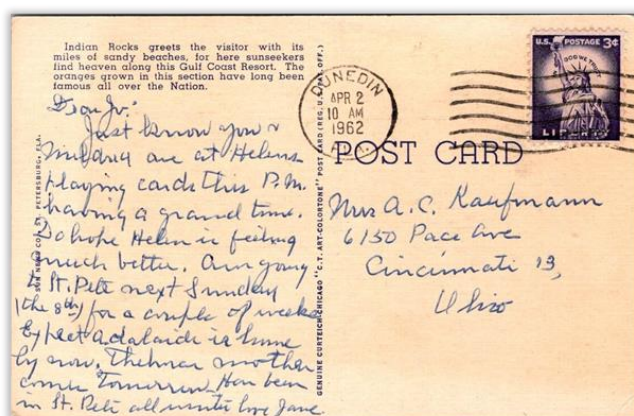 Indian Rocks greets the visitor with its
miles of sandy beaches, for here sunseekers
find heaven along this Gulf Coast Resort. The
oranges grown in this section have long been
famous all over the Nation.
Just know you &
Mildred are at Helens
playing cards this P.M.
having a grand time.
Do hope Helen is feeling
much better. Am going
to St. Pete next Sunday
(the 8th) for a couple of weeks
Expect Adalaide is home
by now. Thelmas mother
comes Tomorrow. Has been
in St. Pete all winter love Jane
SUN NEWS CO., ST. PETERSBURG, FLA.
GENUINE CURTEICH-CHICAGO "C.T. ART-COLORTONE" POST CARD (REG. U.S. PAT. OFF.)
DUNEDIN
APR 2
10 AM
1962
U.S. POSTAGE 3¢
IN GOD WE TRUST
LIBERTY
POST CARD
Mrs A.C. Kaufmann
6150 Pace Ave
Cincinnati 13,
Ohio